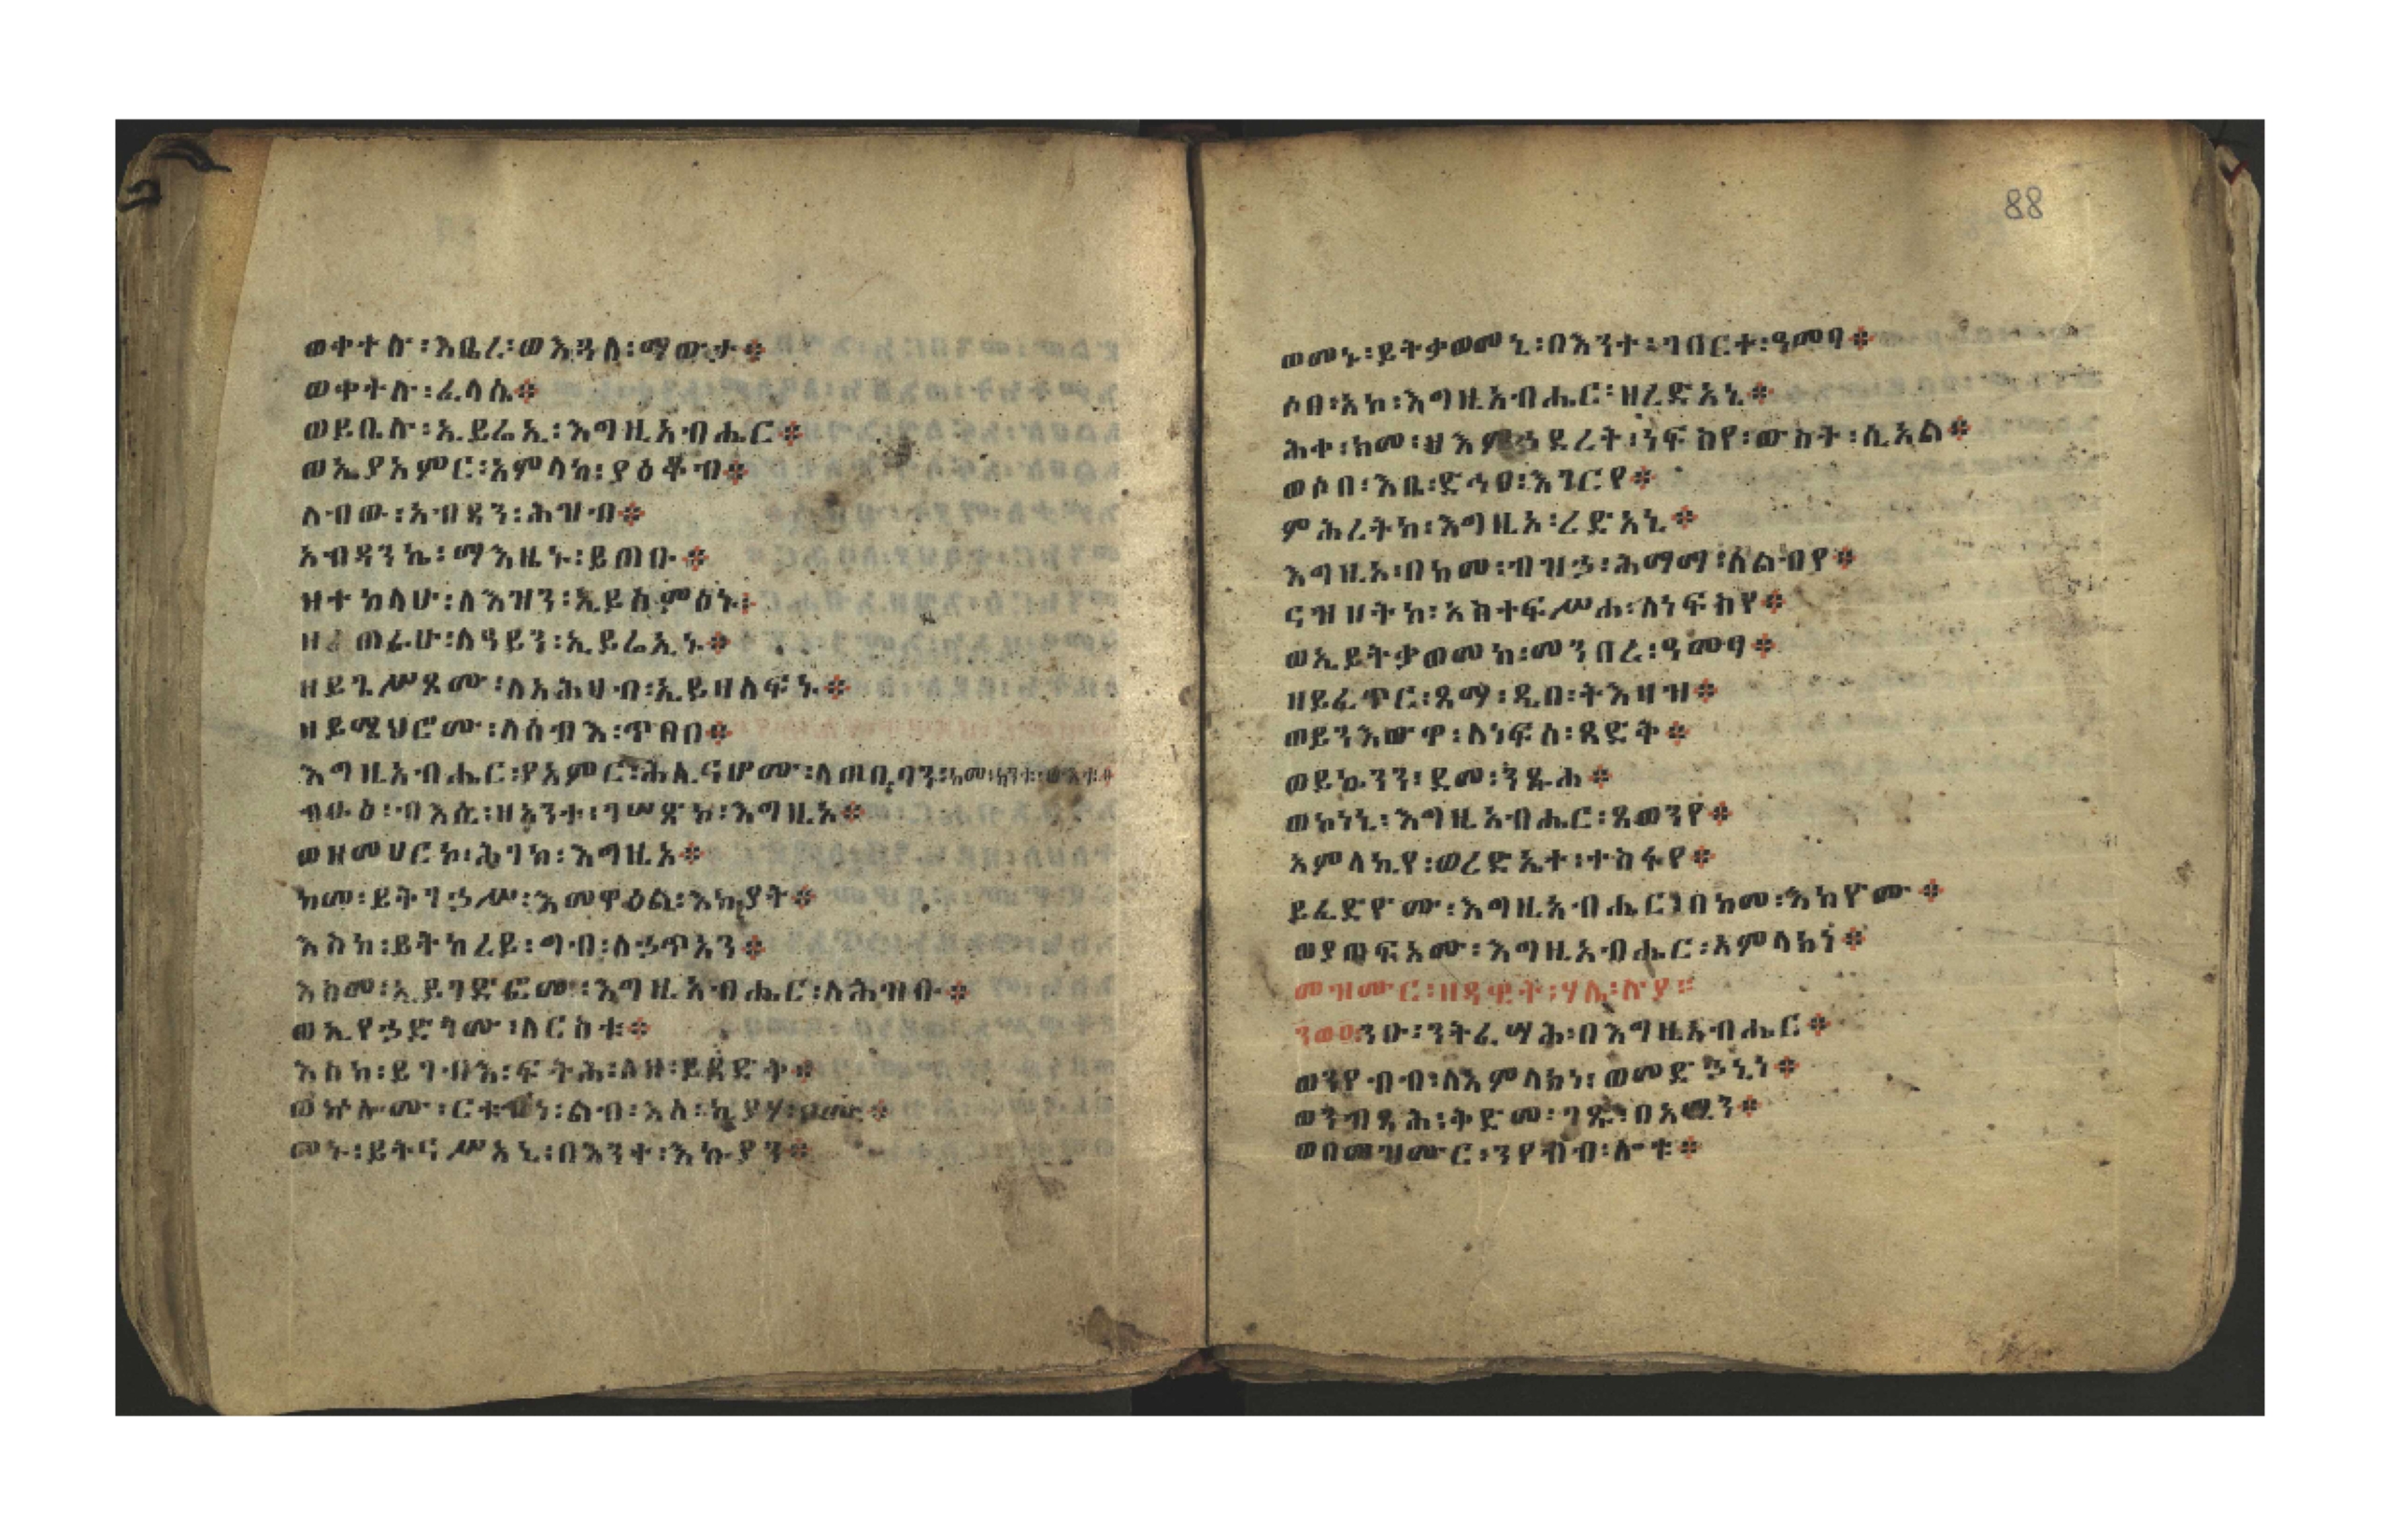 ወቀተሉ፡እቤረ፡ወእጓለ፡ማውታ፨
ወቀተሉ፡ፈላሴ፨
ወይቤሉ፡ኢይሬኢ፡እግዚአብሔር፨
ወኢያአምር፡አምላከ፡ያዕቆብ፨
ለብው፡አብዳን፡ሕዝብ፨
አብዳንኬ፡ማእዜኑ፡ይጠቡ፨
ዝተከላሁ፡ለእዝን፡ኢይሰምዕኑ፨
ዘፈጠራሁ፡ለዓይን፡ኢይሬኢኑ፨
ዘይጌሥጾሙ፡ለአሕዛብ፡ኢይዘልፍኑ፨
ዘይሜህሮሙ፡ለሰብእ፡ጥበበ፨
እግዚአብሔር፡የአምር፡ሕሊናሆሙ፡ለጠቢባን፡ከመ፡ከንቱ፡ውእቱ፨
ብፁዕ፡ብእሲ፡ዘአንተ፡ገሠጽኮ፡እግዚአ፨
ወዘመሀርኮ፡ሕገከ፡እግዚአ፨
ከመ፡ይትገኃሥ፡እመዋዕል፡እኩያት፨
እስከ፡ይትከረይ፡ግብ፡ለኃጥአን፨
እስመ፡ኢይገድፎሙ፡እግዚአብሔር፡ለሕዝቡ፨
ወኢየኃድጎሙ፡ለርስቱ፨
እስከ፡ይገብእ፡ፍትሕ፡ለዘ፡ይጸድቅ፨
ወኵሎሙ፡ርቱዓነ፡ልብ፡እለ፡ኪያሃ፡ቦሙ፨
መኑ፡ይትናሥአኒ፡በእንተ፡እኩያን፨
ወመኑ፡ይትቃወመኒ፡በእንተ፡ገበርተ፡ዓመፃ፨
ሶበ፡አኮ፡እግዚአብሔር፡ዘረድአኒ፨
ሕቀ፡ከመ፡ዘእምኃደረት፡ነፍስየ፡ውስተ፡ሲኦል፨
ወሶበ፡እቤ፡ድኅፀ፡እገርየ፨
ምሕረትከ፡እግዚኦ፡ረድአኒ፨
እግዚኦ፡በከመ፡ብዝኃ፡ሕማማ፡ለልብየ፨
ናዝዞትከ፡አስተፍሥሐ፡ለነፍስየ፨
ወኢይትቃወመከ፡መንበረ፡ዓመፃ፨
ዘይፈጥር፡ጻማ፡ዲበ፡ትእዛዝ፨
ወይንእውዋ፡ለነፍሰ፡ጻድቅ፨
ወይኴንን፡ደመ፡ንጹሐ፨
ወኮነኒ፡እግዚአብሔር፡ጸወንየ፨
አምላኪየ፡ወረድኤተ፡ተስፋየ፨
ይፈድዮሙ፡እግዚአብሔር፡በከመ፡እከዮሙ፨
ወያጠፍኦሙ፡እግዚአብሔር፡አምላክነ፨
መዝሙር፡ዘዳዊት፡ሃሌ፡ሉያ፨
ንዑ፡ንትፈሣሕ፡በእግዚአብሔር፨
ወንየብብ፡ለአምላክነ፡ወመድኃኒነ፨
ወንብጻሕ፡ቅድመ፡ገጹ፡በአሚን፨
ወበመዝሙር፡ንየብብ፡ሎቱ፨